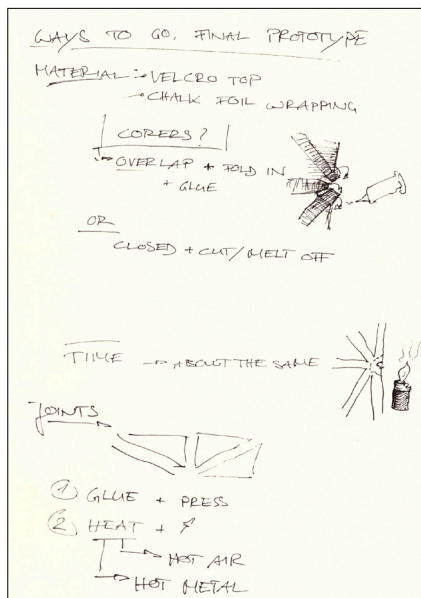 WAYS TO GO, FINAL PROTOTYPE
MATERIAL: → VELCRO TOP
→ CHALK FOIL WRAPPING
CORERS?
→ OVERLAP + FOLD IN
+ GLUE
OR
CLOSED + CUT/MELT OFF
TIME → ABOUT THE SAME
JOINTS
① GLUE + PRESS
② HEAT +
→ HOT AIR
→ HOT METAL